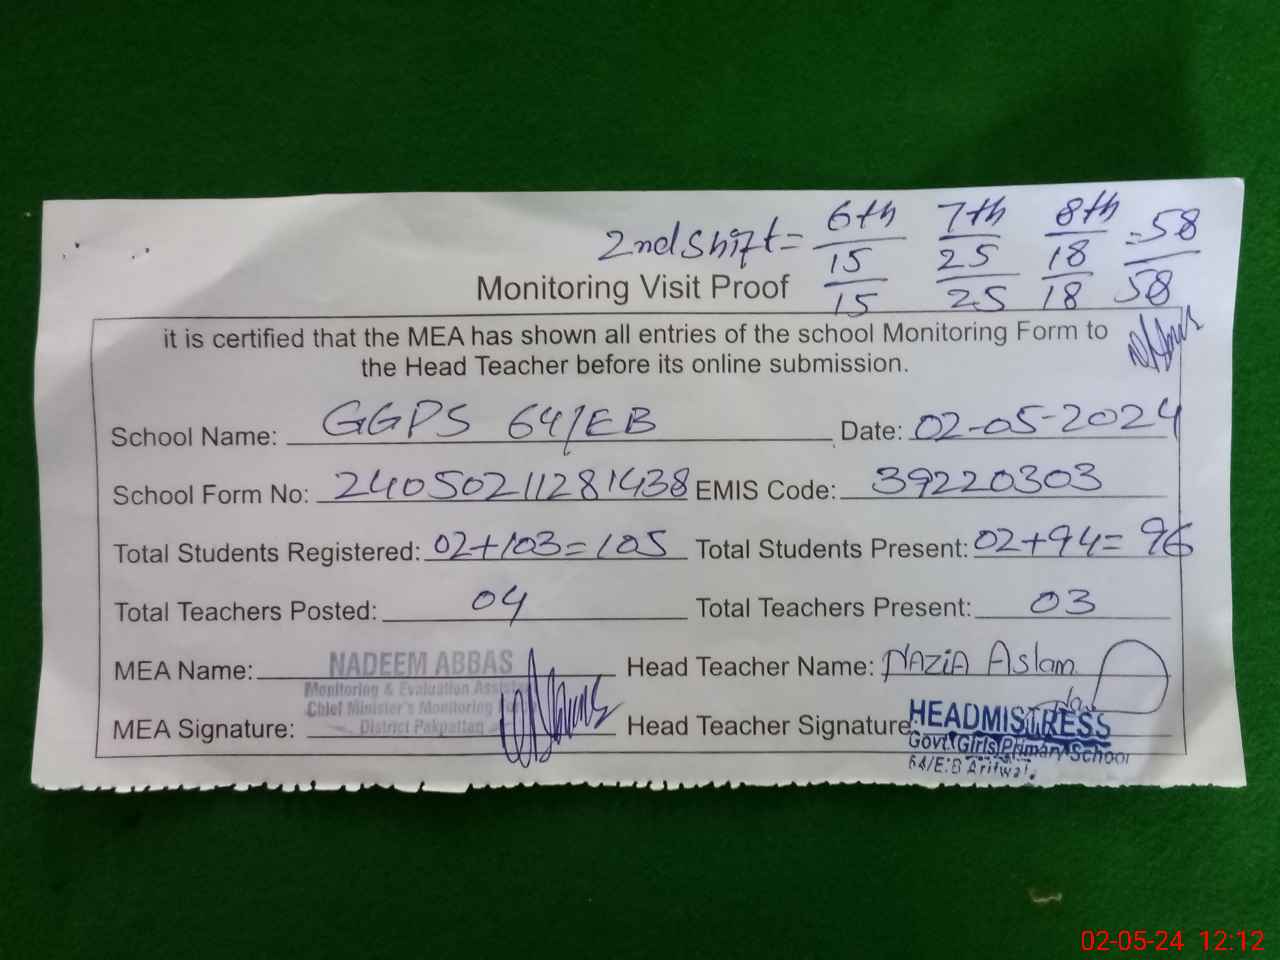 2nd Shift = 6th 7th 8th = 58
15 25 18 58
15 25 18
Monitoring Visit Proof
it is certified that the MEA has shown all entries of the school Monitoring Form to
the Head Teacher before its online submission.
School Name: GGPS 64/EB Date: 02-05-2024
School Form No: 24050211281438 EMIS Code: 39220303
Total Students Registered: 02+103=105 Total Students Present: 02+94= 96
Total Teachers Posted: 04 Total Teachers Present: 03
MEA Name: NADEEM ABBAS Head Teacher Name: NAZiA Aslam
Monitoring & Evaluation
Chief Minister's Monitoring
District Pakpattan
MEA Signature: Head Teacher Signature:
HEADMISTRESS
Govt. Girls Primary School
64/E.B Arifwal.
02-05-24 12:12